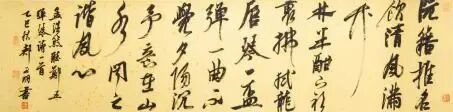 阮籍推名
飲清風滿
竹
林半酣下衫
袖拂拭龍
唇琴一盃
彈一曲不
覺夕陽沉
予意在山
水聞之
諧夙心
孟浩然聽鄭五
愔彈琴一首